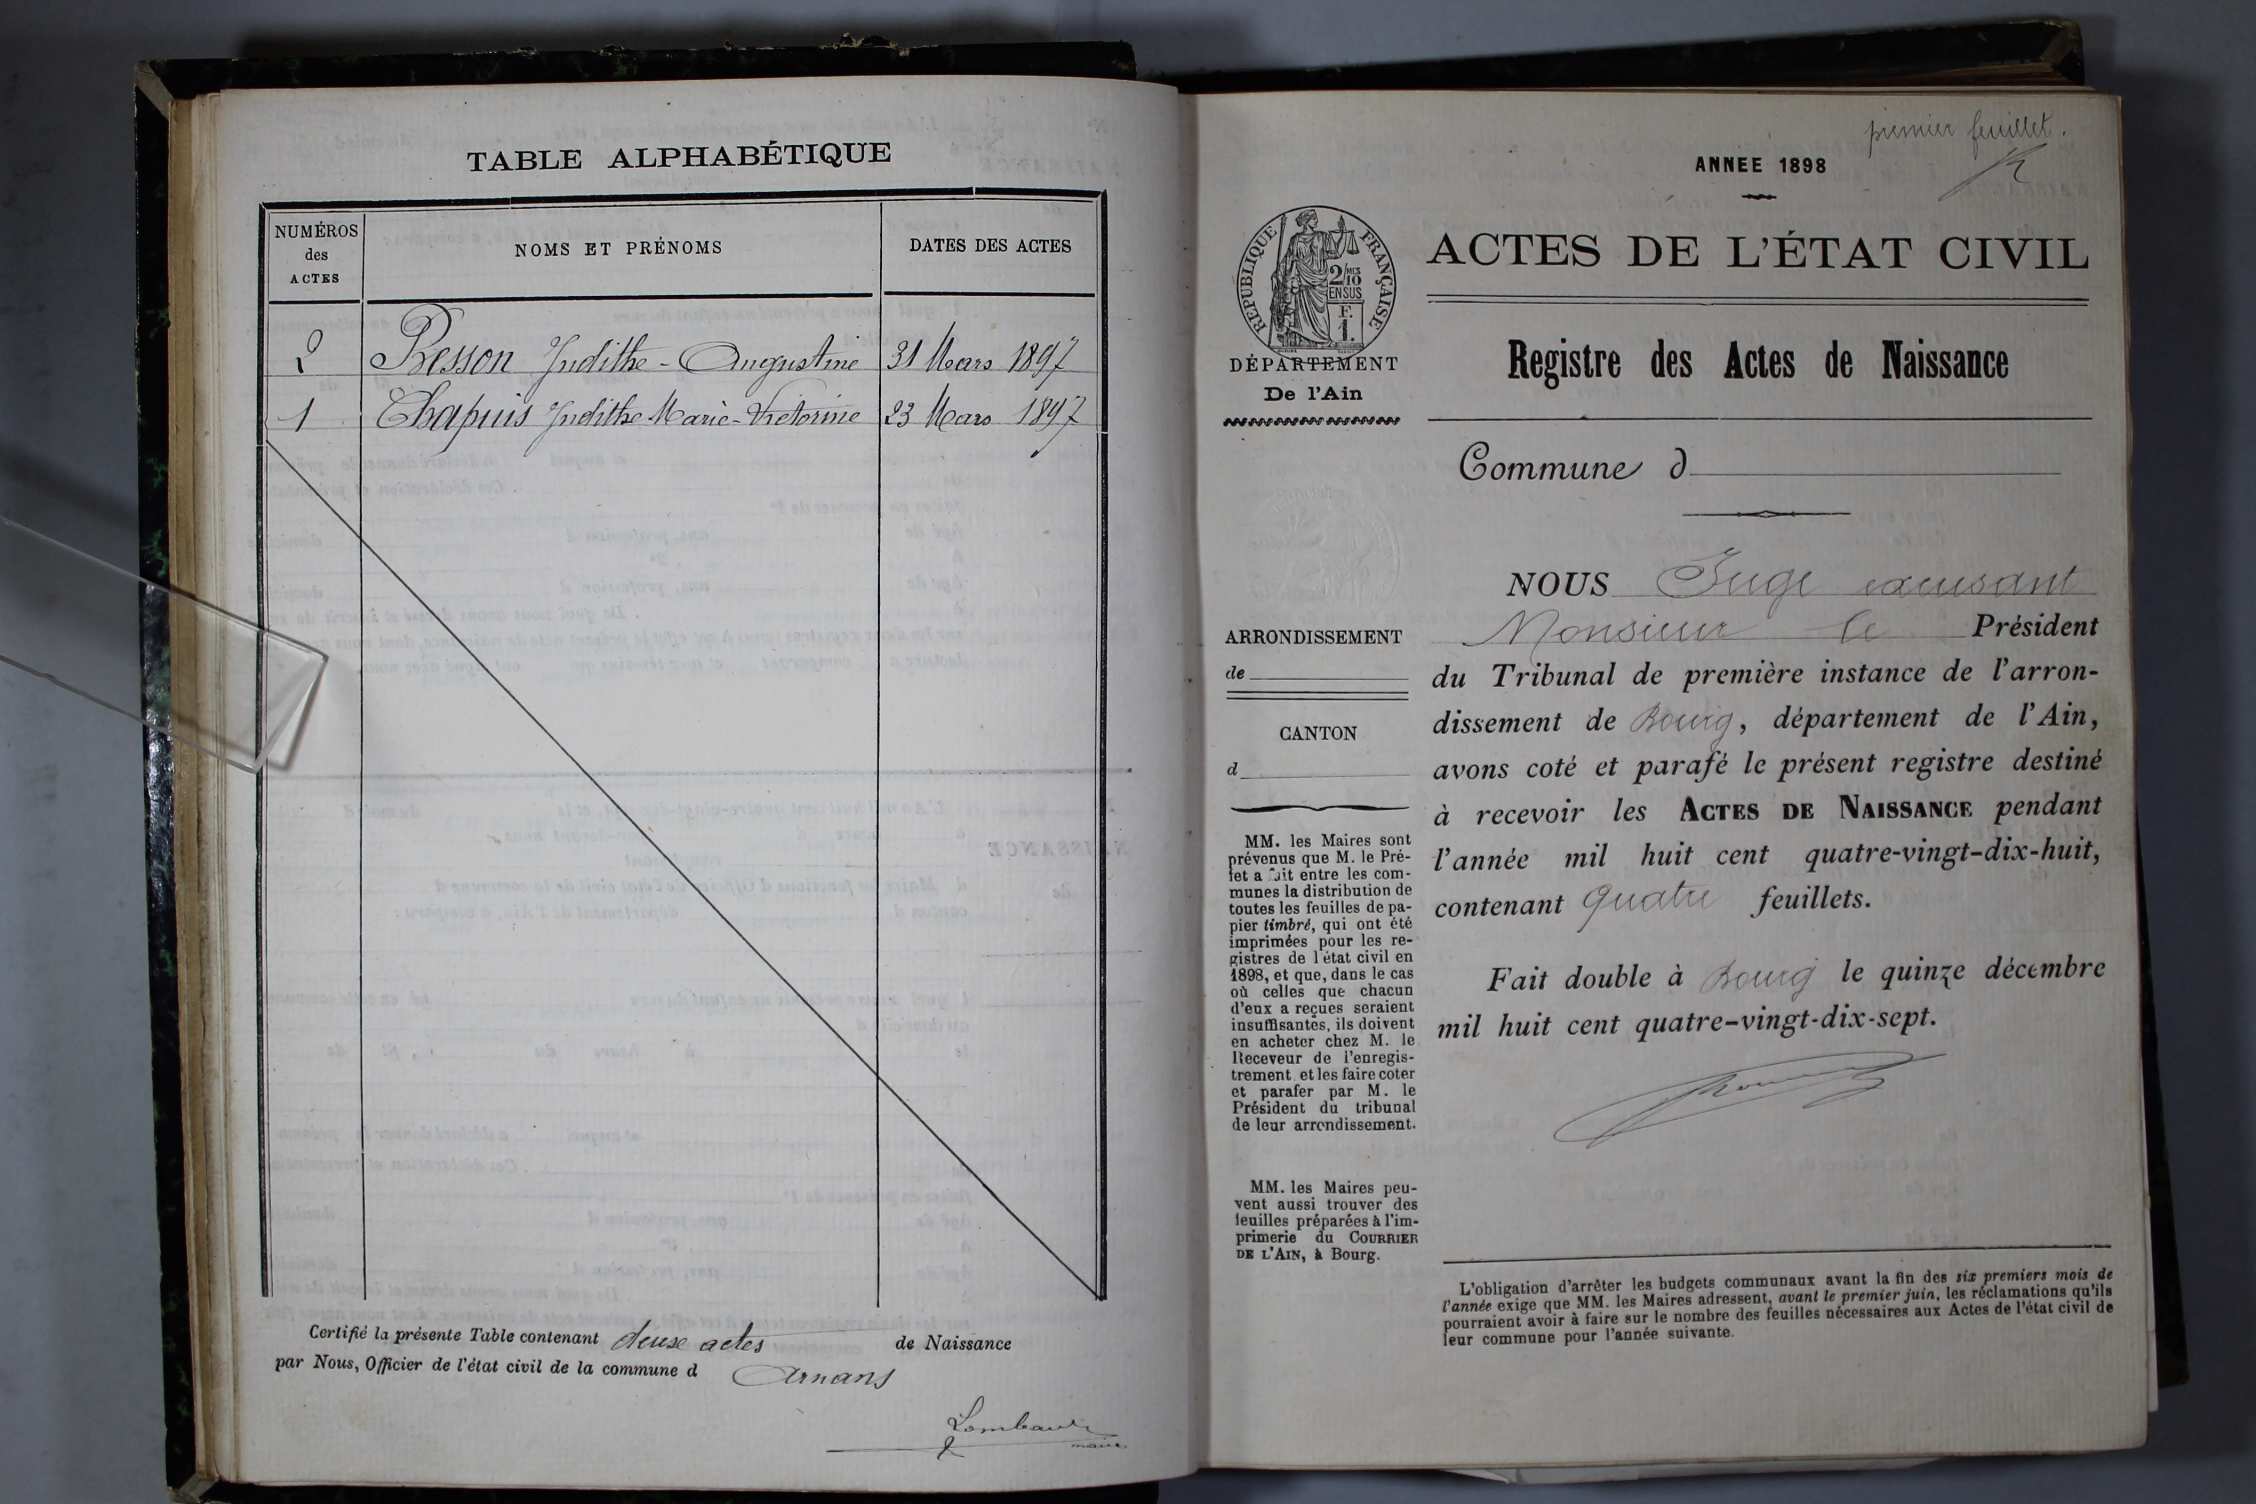 TABLE ALPHABÉTIQUE
NUMÉROS
des
ACTES
NOMS ET PRÉNOMS
DATES DES ACTES
2 Besson Judithe-Augustine 31 Mars 1897
1 Chapuis Judithe-Marie-Victorine 23 Mars 1897
Certifié la présente Table contenant deuse actes de Naissance
par Nous, Officier de l'état civil de la commune d Arnans
maire
premier feuillet.
ANNEE 1898
RÉPUBLIQUE FRANÇAISE
2/10 MES
EN SUS
F.
1.
DÉPARTEMENT
De l'Ain
ACTES DE L'ÉTAT CIVIL
Registre des Actes de Naissance
Commune d
ARRONDISSEMENT
de
CANTON
d
MM. les Maires sont
prévenus que M. le Pré-
fet a fait entre les com-
munes la distribution de
toutes les feuilles de pa-
pier timbré, qui ont été
imprimées pour les re-
gistres de l'état civil en
1898, et que, dans le cas
où celles que chacun
d'eux a reçues seraient
insuffisantes, ils doivent
en acheter chez M. le
Receveur de l'enregis-
trement et les faire coter
et parafer par M. le
Président du tribunal
de leur arrondissement.
MM. les Maires peu-
vent aussi trouver des
feuilles préparées à l'im-
primerie du COURRIER
DE L'AIN, à Bourg.
NOUS Juge excusant
Monsieur le Président
du Tribunal de première instance de l'arron-
dissement de Bourg, département de l'Ain,
avons coté et parafé le présent registre destiné
à recevoir les ACTES DE NAISSANCE pendant
l'année mil huit cent quatre-vingt-dix-huit,
contenant quatre feuillets.
Fait double à Bourg le quinze décembre
mil huit cent quatre-vingt-dix-sept.
L'obligation d'arrêter les budgets communaux avant la fin des six premiers mois de
l'année exige que MM. les Maires adressent, avant le premier juin, les réclamations qu'ils
pourraient avoir à faire sur le nombre des feuilles nécessaires aux Actes de l'état civil de
leur commune pour l'année suivante.